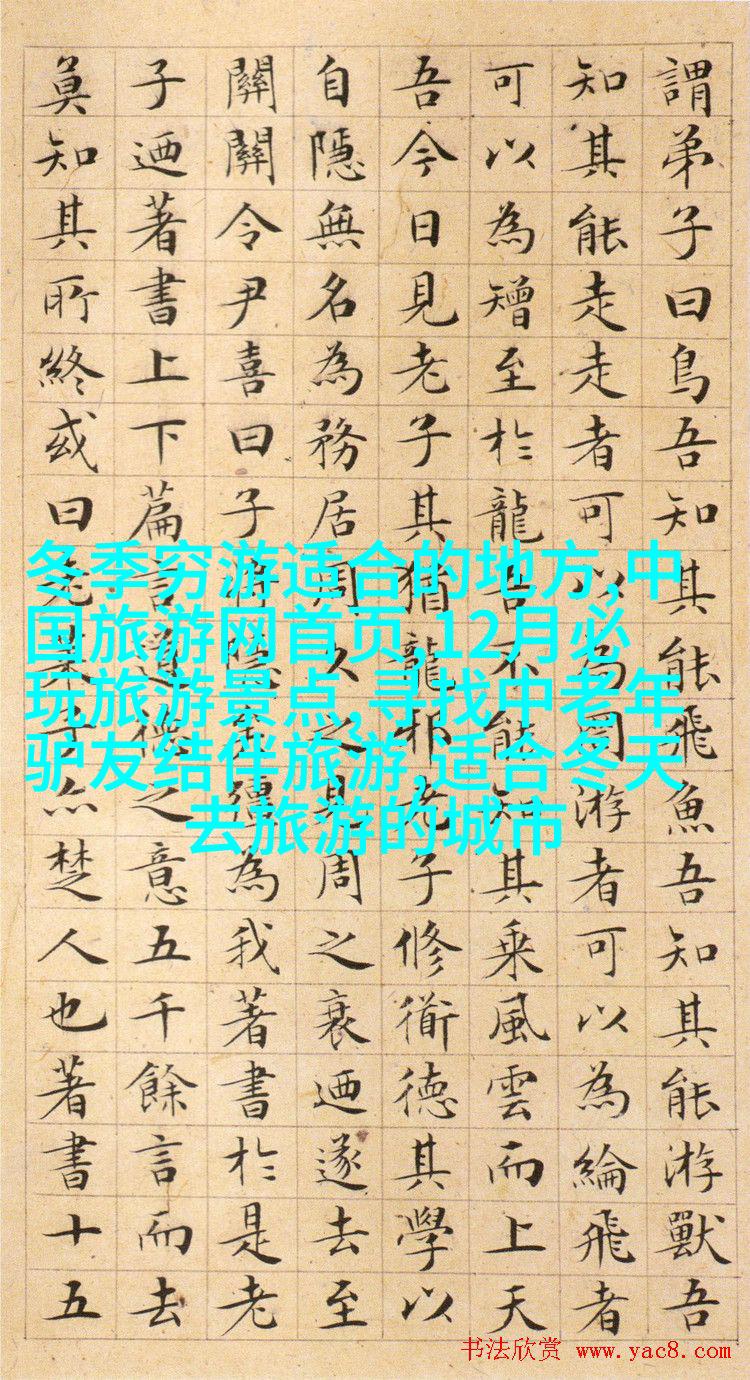 謂弟子曰鳥吾知其能飛魚吾知其能游獸吾
知其能走走者可以為罔游者可以為綸飛者
可以為矰至於龍吾不能知其乘風雲而上天
吾今日見老子其猶龍邪老子修衜德其學以
自隱無名為務居周久之見周之衰迺遂去至
關關令尹喜曰子將隱矣彊為我著書於是老
子迺著書上下篇言道德之意五千餘言而去
莫知其所終或曰老萊子亦楚人也著書十五
冬季穷游适合的地方,中
国旅游网首页,12月必
玩旅游景点,寻找中老年
驴友结伴旅游,适合冬天
去旅游的城市
书法欣赏 www.yac8.com